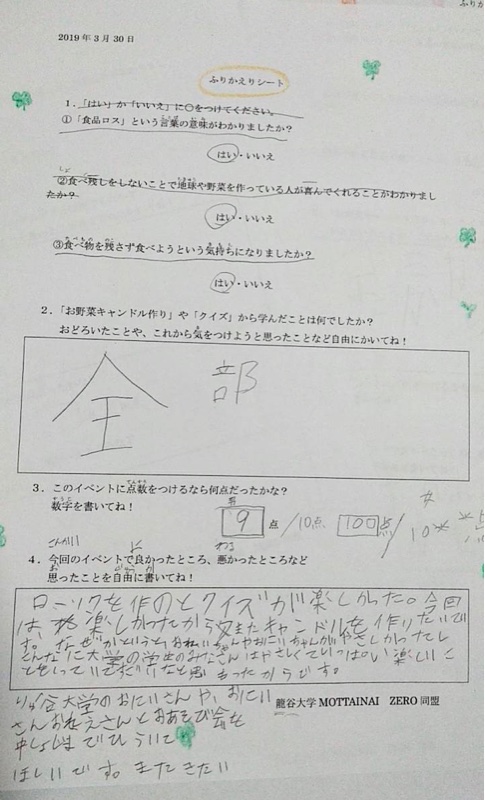 2019年3月30日
ふりかえりシート
1．「はい」か「いいえ」に○をつけてください。
①「食品ロス」という言葉の意味がわかりましたか？
はい・いいえ
②食べ残しをしないことで地球や野菜を作っている人が喜んでくれることがわかりまし
たか？
はい・いいえ
③食べ物を残さず食べようという気持ちになりましたか？
はい・いいえ
2．「お野菜キャンドル作り」や「クイズ」から学んだことは何でしたか？
おどろいたことや、これから気をつけようと思ったことなど自由にかいてね！
全 部
3．このイベントに点数をつけるなら何点だったかな？
数字を書いてね！
9 点 /10点 100点/
4．今回のイベントで良かったところ、悪かったところなど
思ったことを自由に書いてね！
ローソクを作のとクイズが楽しかった。今回
は、楽しかったからまたキャンドルを作りたいで
す。なぜかというと、おねいちゃんやおにいちゃんがやさしかったし
こんなに大学の学生のみなさんはやさしくていっぱい楽しいこ
とをしていて だなと思ったからです。
龍谷大学 MOTTAINAI ZERO 同盟
谷大学のおにいさんや、おにい
さんおねえさんとおあそび会を
ほしいです。またきたい